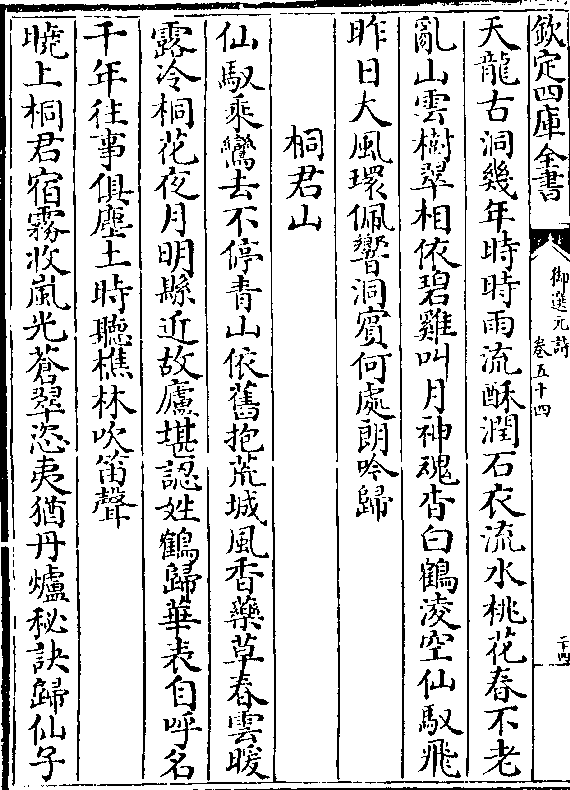 欽定四庫全書
御選元詩
卷五十四
二十四
天龍古洞幾年時時雨流酥潤石衣流水桃花春不老
亂山雲樹翠相依碧雞叫月神魂杳白鶴淩空仙馭飛
昨日大風環佩響洞賓何處朗吟歸
桐君山
仙馭乘鸞去不停青山依舊抱荒城風香藥草春雲暖
露冷桐花夜月明縣近故廬堪認姓鶴歸華表自呼名
千年往事俱塵土時聽樵林吹笛聲
曉上桐君宿霧收嵐光蒼翠恣夷猶丹爐秘訣歸仙子